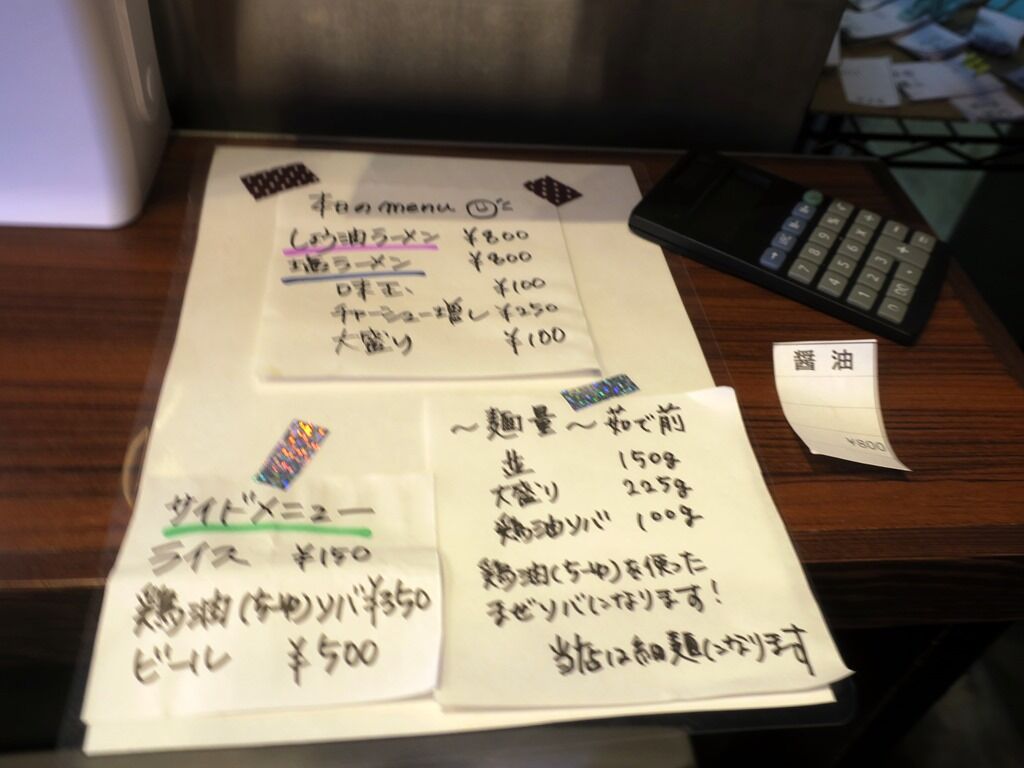 本日の menu
しょう油ラーメン ¥800
塩ラーメン ¥800
味玉 ¥100
チャーシュー増し ¥250
大盛り ¥100
サイドメニュー
ライス ¥150
鶏油(ちーゆ)ソバ ¥350
ビール ¥500
～麺量～茹で前
並 150g
大盛り 225g
鶏油ソバ 100g
鶏油(ちーゆ)を使った
まぜソバになります!
当店は細麺になります
醤油
¥800